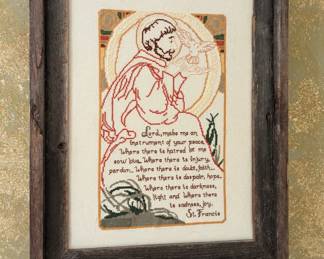 Lord, make me an
Instrument of your peace,
Where there is hatred let me
sow love, Where there is injury,
pardon... Where there is doubt, faith...
Where there is despair, hope,
Where there is darkness,
light and Where there
is sadness, joy.
St. Francis